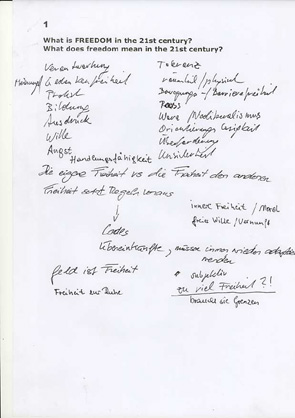 1
What is FREEDOM in the 21st century?
What does freedom mean in the 21st century?
Verantwortung
Gedankenfreiheit
Bildung
Ausdruck
Wille
Angst
Handlungsfähigkeit
Toleranz
räumlich/physisch
Bewegungs-/Barrierefreiheit
Ware/Neoliberalismus
Orientierungslosigkeit
Überforderung
Unsicherheit
Die eigene Freiheit vs die Freiheit der anderen
Freiheit setzt Regeln voraus
innere Freiheit / Moral
freie Wille / Vernunft
Codes
Übereinkünfte, müssen immer wieder
werden
Geld ist Freiheit
Freiheit zur Ruhe
subjektiv
zu viel Freiheit?!
brauche Grenzen